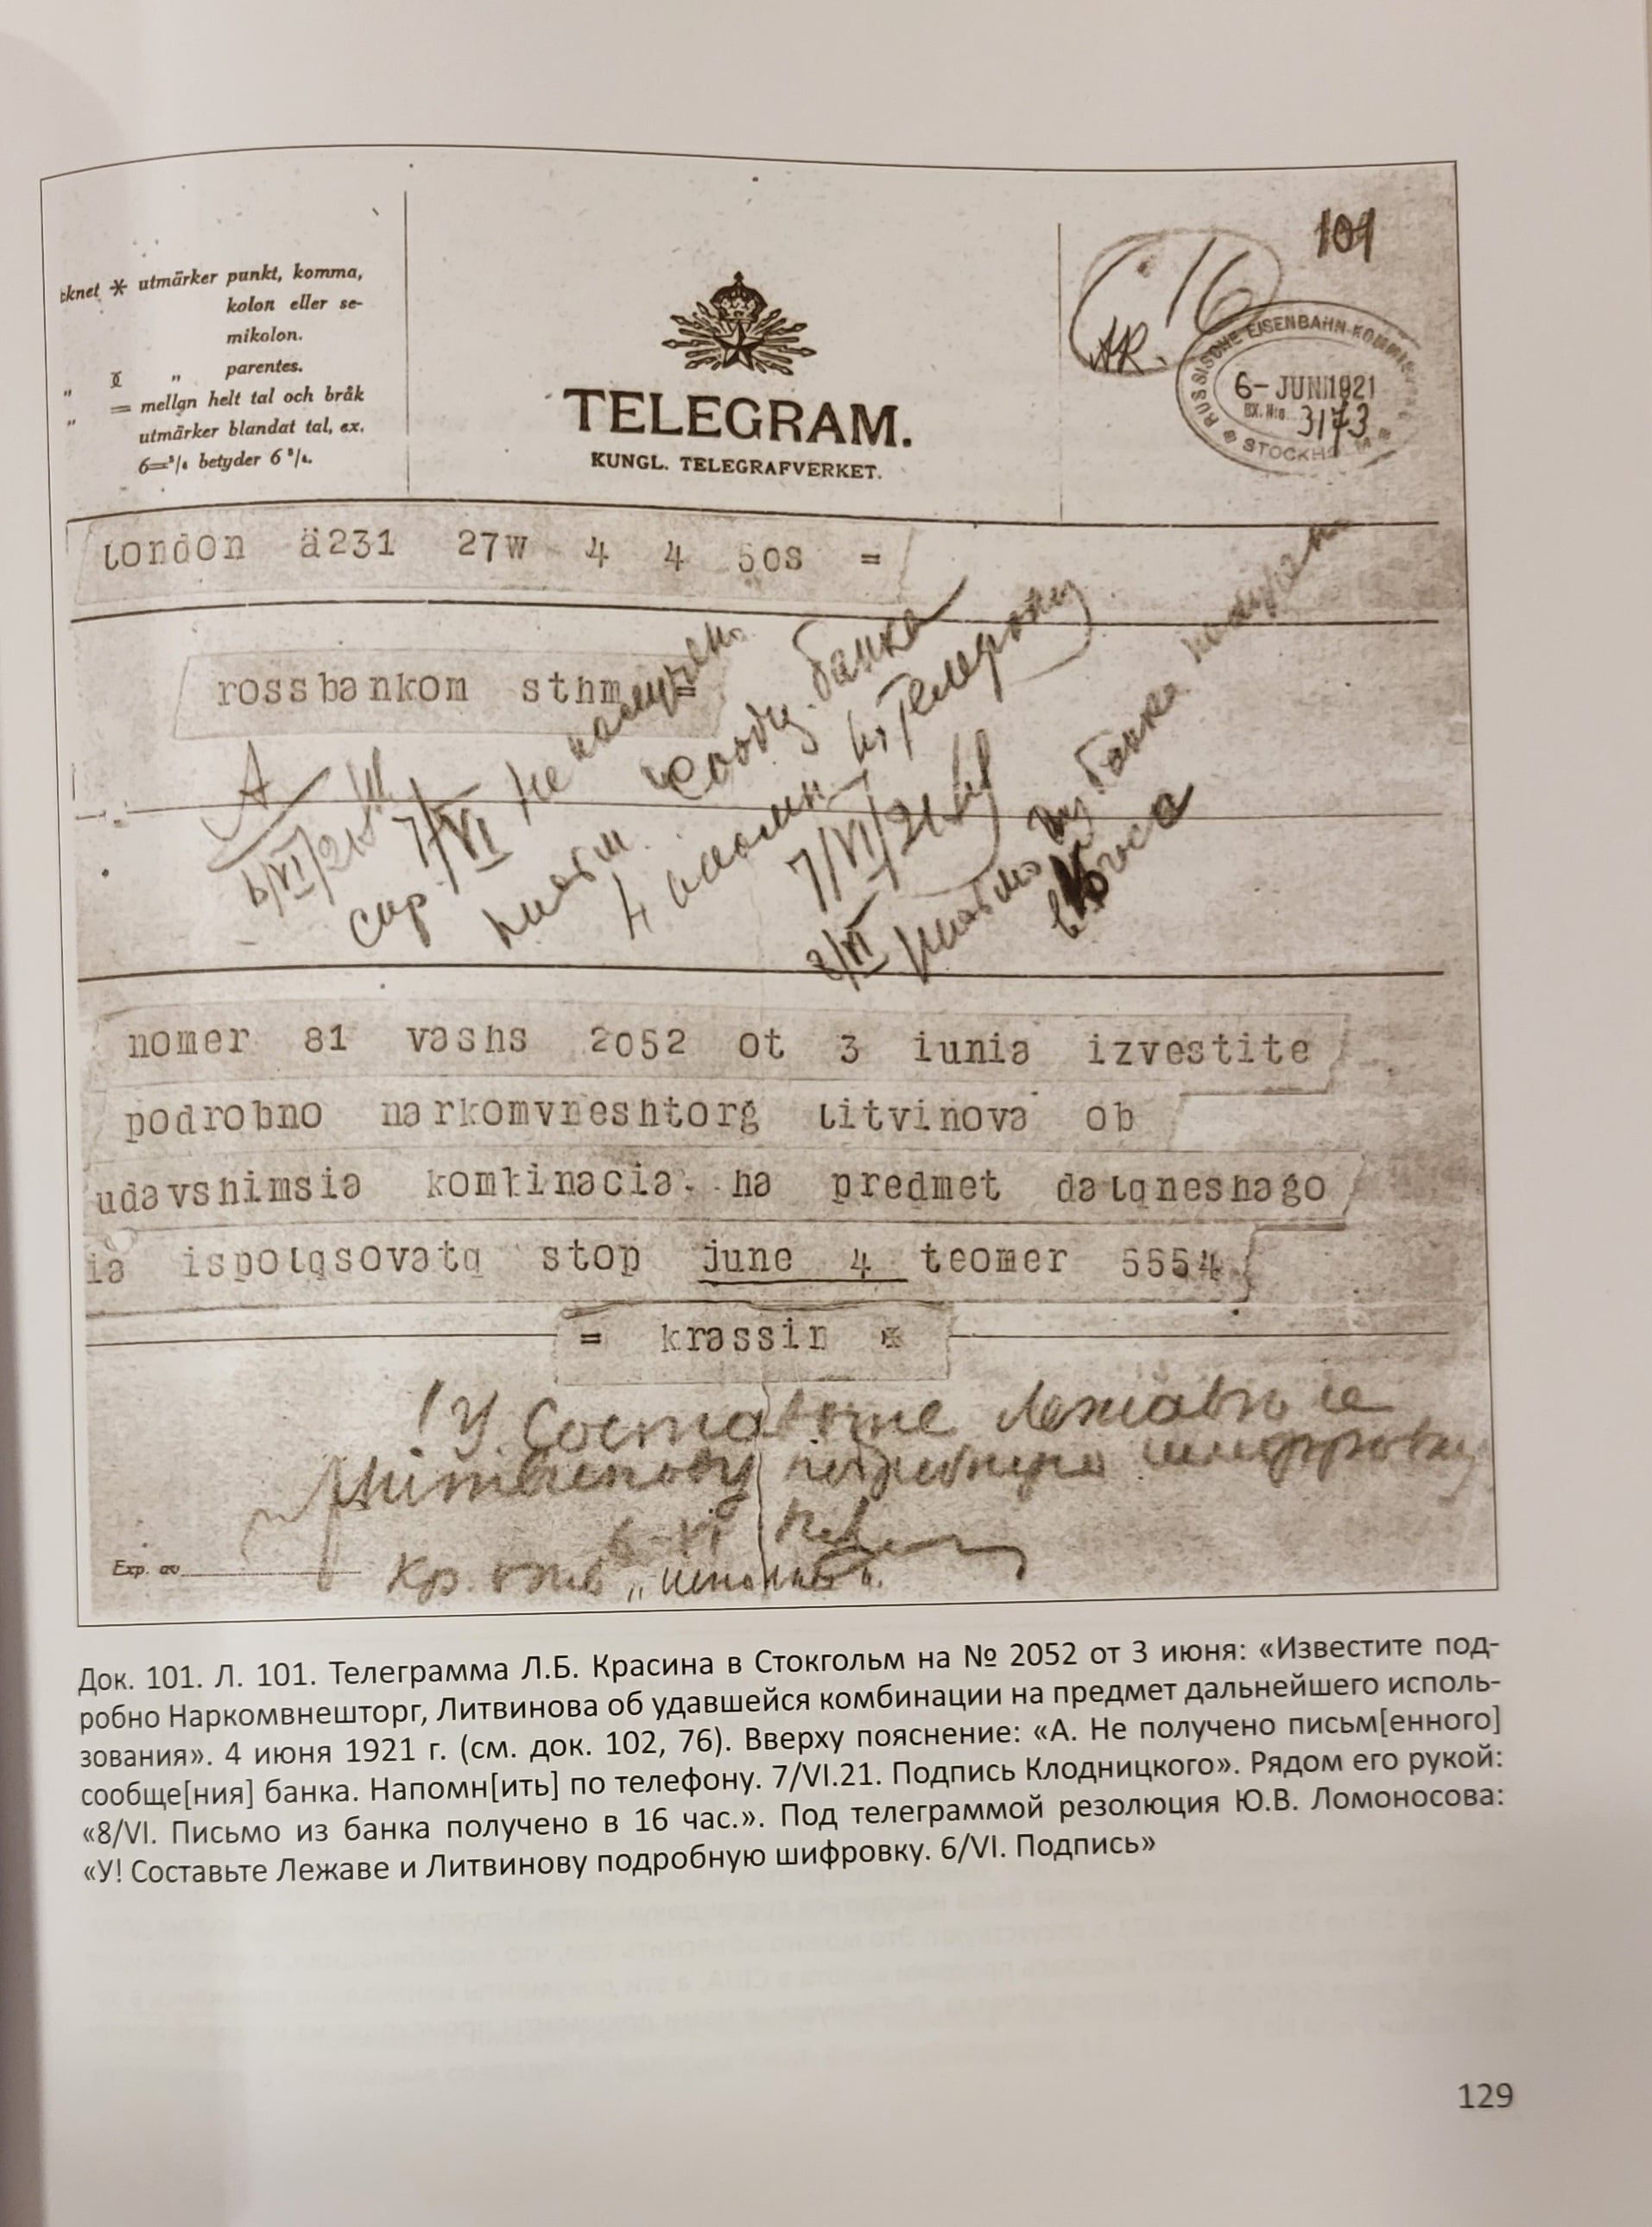 utmärker punkt, komma,
kolon eller se-
mikolon.
" " parentes.
" = mellan helt tal och bråk
utmärker blandat tal, ex.
betyder
TELEGRAM.
KUNGL. TELEGRAFVERKET.
101
16
RUSSISCHE EISENBAHN-KOMMI
6- JUNI 1921
3173
STOCKHOLM
london ä231 27w 4 4 50s =
rossbankom sthm =
А
6/VI/21
7/VI Не получен.
письм. сообщ. банка
напомн. по телефону
7/VI/21
8/VI письмо из банка получено
в 16 часа
nomer 81 vashs 2052 ot 3 iunia izvestite
podrobno narkomvneshtorg litvinova ob
udavshimsia kombinacia na predmet dalqneshago
ia ispolqsovatq stop june 4 teomer 5554
= krassin *
! У. Составьте Лежаве
и Литвинову подробную шифровку
6-VI
Кр. отв.
Exp. av
Док. 101. Л. 101. Телеграмма Л.Б. Красина в Стокгольм на № 2052 от 3 июня: «Известите под-
робно Наркомвнешторг, Литвинова об удавшейся комбинации на предмет дальнейшего исполь-
зования». 4 июня 1921 г. (см. док. 102, 76). Вверху пояснение: «А. Не получено письм[енного]
сообще[ния] банка. Напомн[ить] по телефону. 7/VI.21. Подпись Клодницкого». Рядом его рукой:
«8/VI. Письмо из банка получено в 16 час.». Под телеграммой резолюция Ю.В. Ломоносова:
«У! Составьте Лежаве и Литвинову подробную шифровку. 6/VI. Подпись»
129